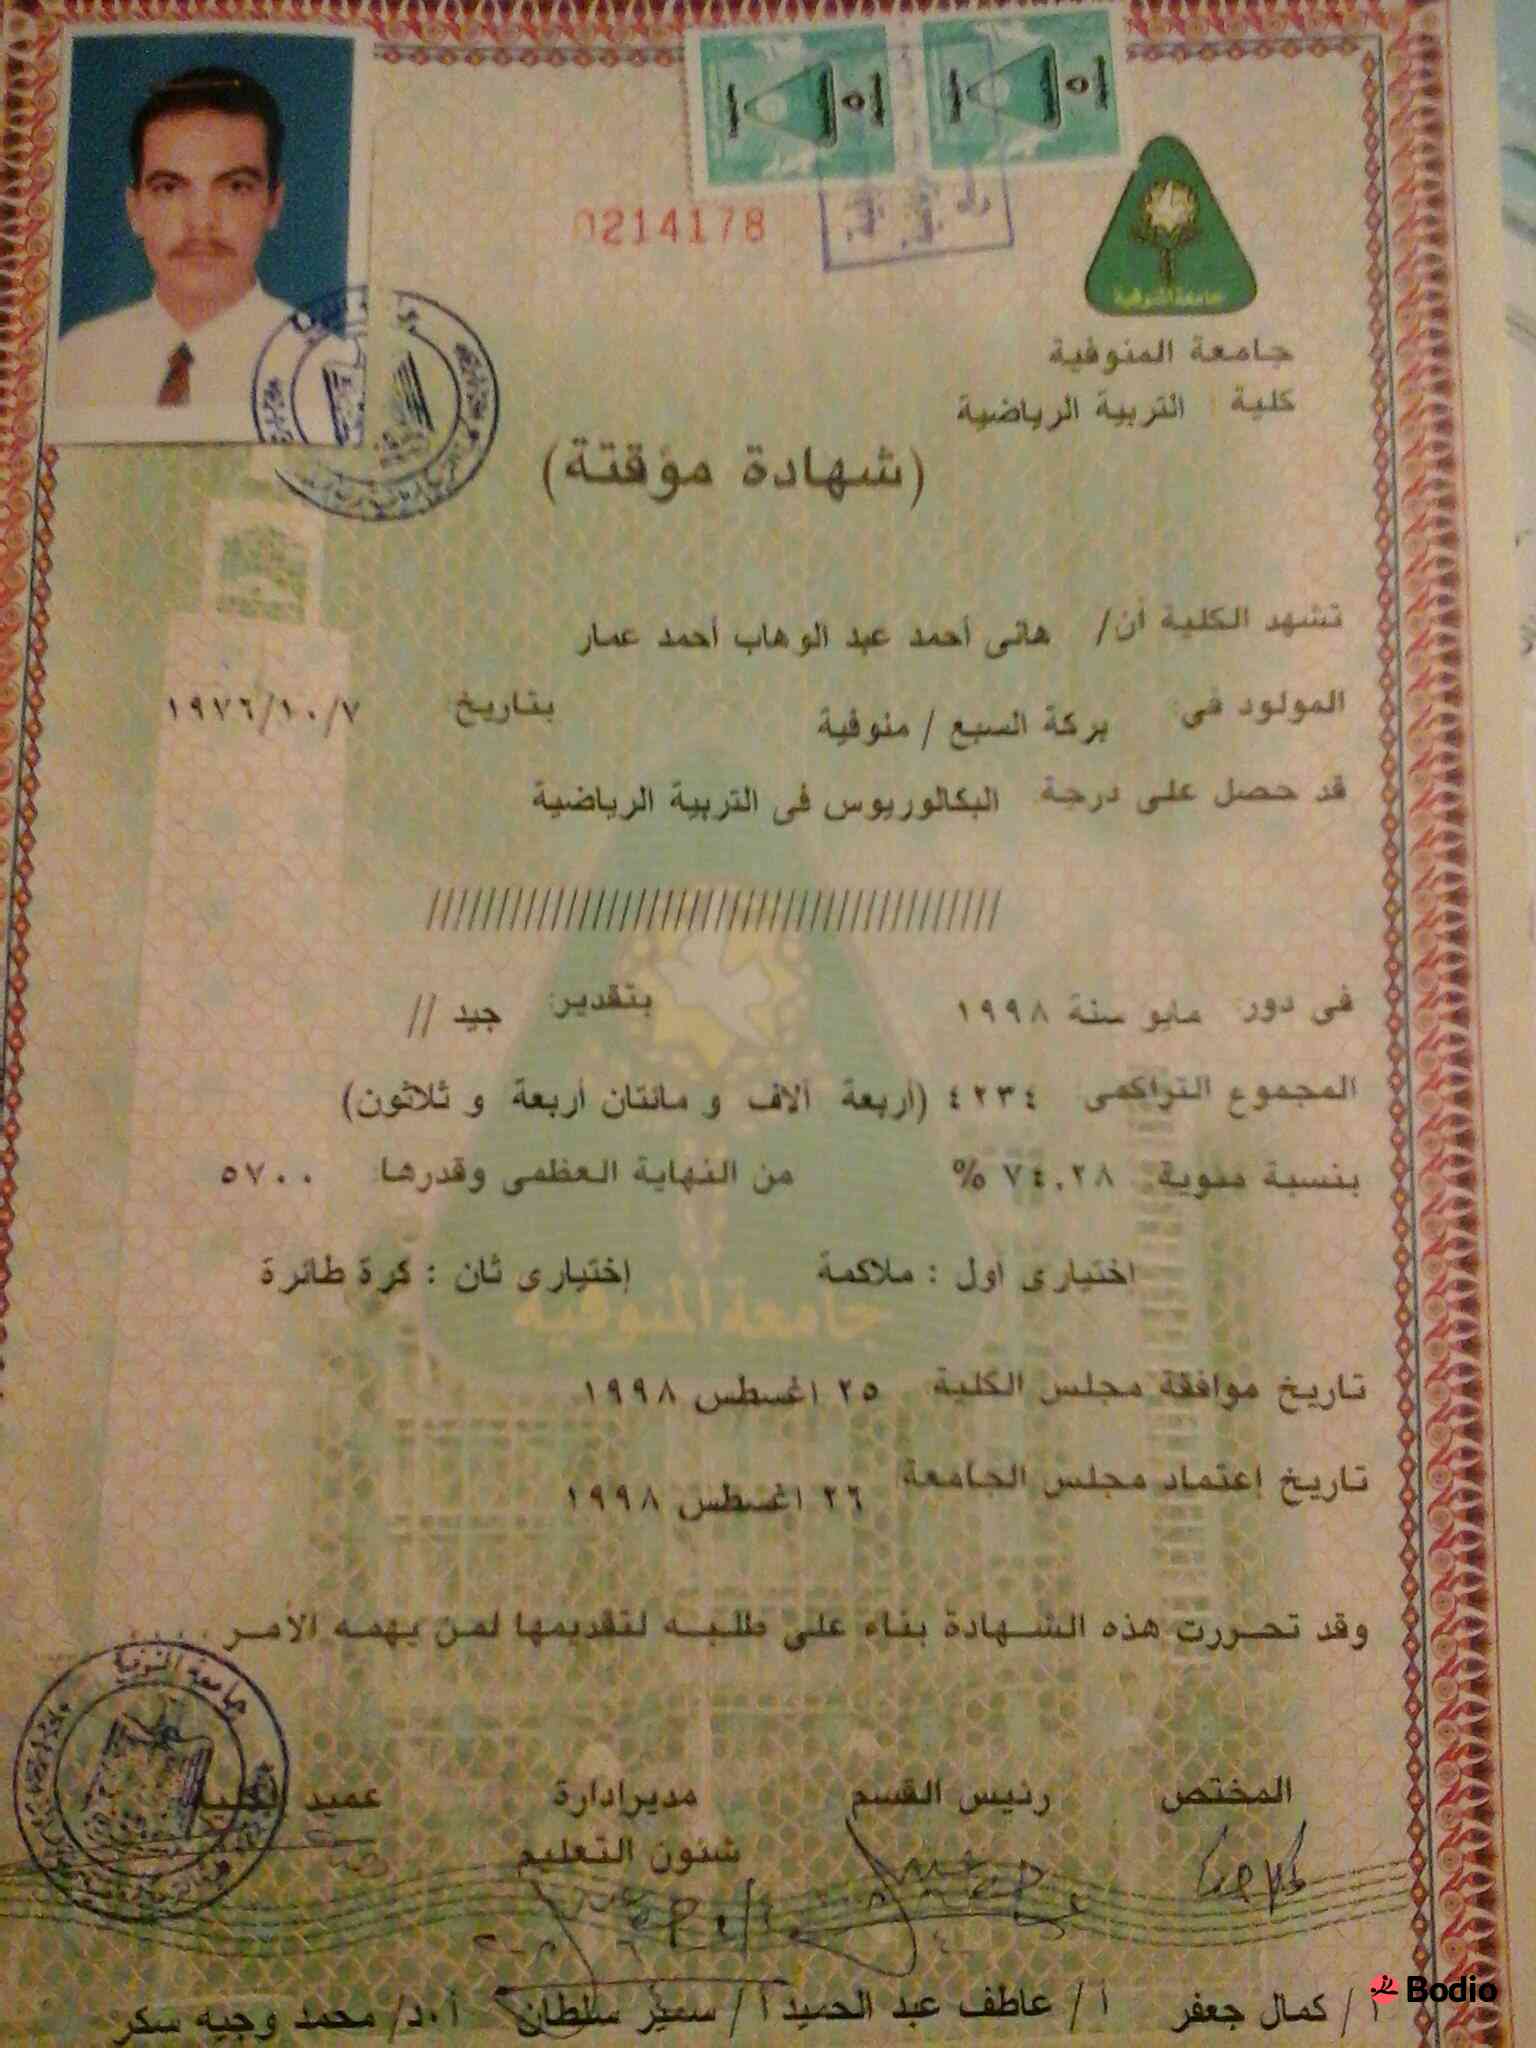 0214178
جامعة المنوفية
جامعة المنوفية
كلية التربية الرياضية
(شهادة مؤقتة)
تشهد الكلية أن/ هانى أحمد عبد الوهاب أحمد عمار
المولود فى: بركة السبع / منوفية بتاريخ: ١٩٧٦/١٠/٧
قد حصل على درجة البكالوريوس فى التربية الرياضية
فى دور: مايو سنة ١٩٩٨ بتقدير: جيد //
المجموع التراكمى ٤٢٣٤ (أربعة آلاف و مائتان أربعة و ثلاثون)
بنسبة مئوية ٧٤.٢٨ % من النهاية العظمى وقدرها ٥٧٠٠
اختيارى أول : ملاكمة إختيارى ثان : كرة طائرة
جامعة المنوفية
تاريخ موافقة مجلس الكلية ٢٥ اغسطس ١٩٩٨
تاريخ إعتماد مجلس الجامعة ٢٦ اغسطس ١٩٩٨
وقد تحررت هذه الشهادة بناء على طلبه لتقديمها لمن يهمه الأمر . . . .
جامعة المنوفية
المختص رئيس القسم مدير ادارة عميد الكلية
شئون التعليم
أ / كمال جعفر أ / عاطف عبد الحميد أ / سمير سلطان أ.د/ محمد وجيه سكر
Bodio